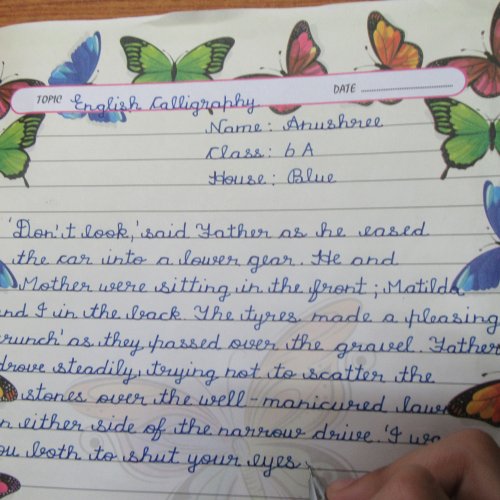 TOPIC English Calligraphy DATE
Name: Anushree
Class: 6 A
House: Blue
'Don't look,' said Father as he eased
the car into a lower gear. He and
Mother were sitting in the front; Matilda
and I in the back. The tyres made a pleasing
crunch' as they passed over the gravel. Father
drove steadily, trying not to scatter the
stones over the well-manicured lawn
on either side of the narrow drive. 'I
you both to shut your eyes